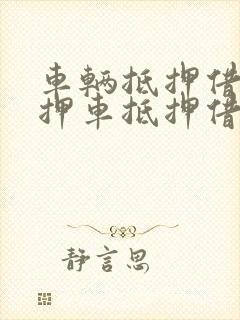 車輛抵押借
押車抵押借
靜言思